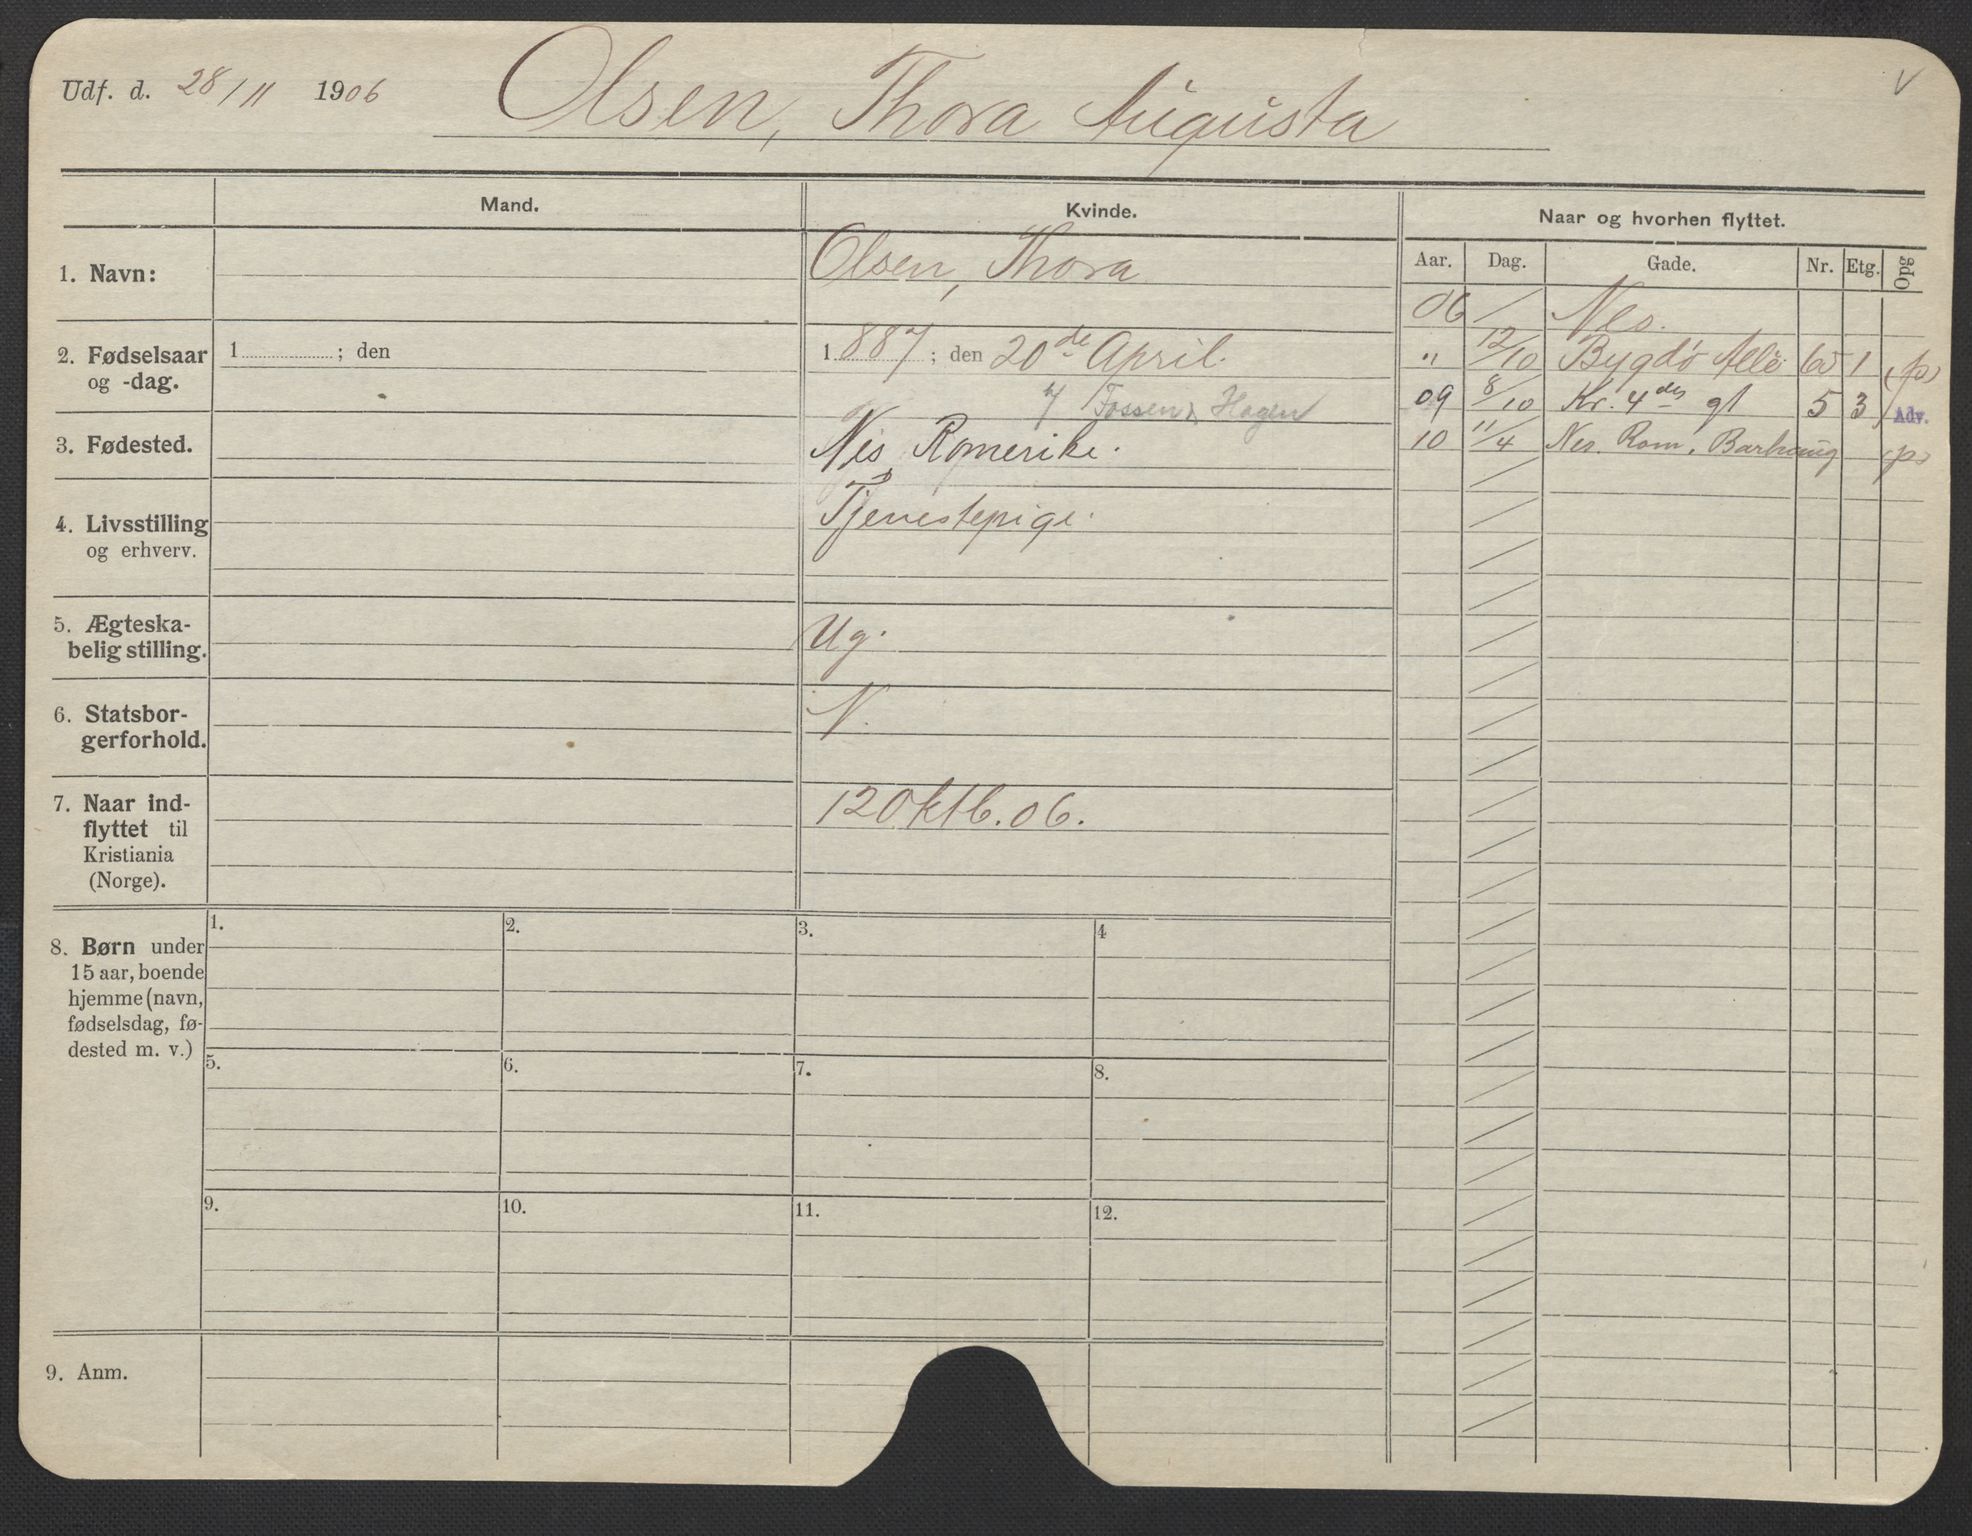 Udf. d. 28/11 1906 Olsen, Thora Augusta V
Mand. Kvinde. Naar og hvorhen flyttet.
Aar. Dag. Gade. Nr. Etg. Opg
1. Navn: Olsen, Thora
06 Nes.
2. Fødselsaar og -dag. 1 ; den 1887 ; den 20de April.
" 12/10 Bygdø Allé 60 1 (p)
7 Fossen Hagen
09 8/10 Kr. 4des gt 5 3 Adv.
3. Fødested. Nes, Romerike.
10 11/4 Nes. Rom. Barhaug (p)
4. Livsstilling og erhverv. Tjenestepige.
5. Ægteska-
belig stilling. Ug.
6. Statsbor-
gerforhold. N.
7. Naar ind-
flyttet til
Kristiania
(Norge). 12 Oktb. 06.
8. Børn under
15 aar, boende
hjemme (navn,
fødselsdag, fø-
dested m. v.)
1. 2. 3. 4
5. 6. 7. 8.
9. 10. 11. 12.
9. Anm.